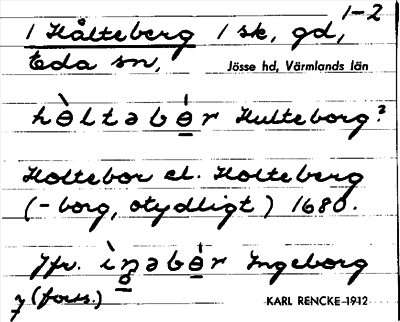 1-2
1 Hålteberg 1 sk, gd,
Eda sn, Jösse hd, Värmlands län
hɵ̀ltəbɵ̠́r Hulteborg?
Holtebor el. Holteberg
(-borg, otydligt) 1680.
Jfr. ìŋəbɵ̠́r Ingeborg
(forts.) KARL RENCKE 1912